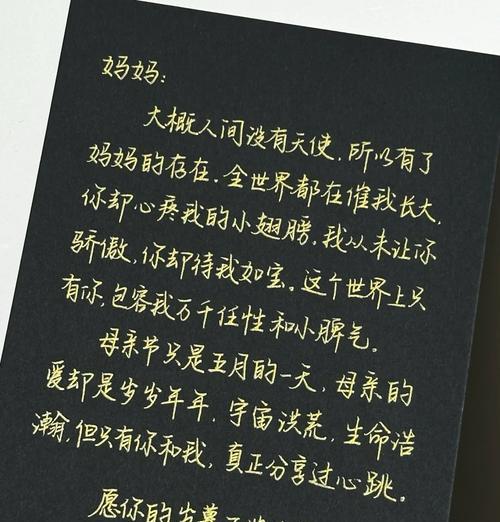 妈妈:
大概人间没有天使,所以有了
妈妈的存在。全世界都在催我长大,
你却心疼我的小翅膀。我从未让你
骄傲,你却待我如宝。这个世界上只
有你,包容我万千任性和小脾气。
母亲节只是五月的一天,母亲的
爱却是岁岁年年,宇宙洪荒,生命浩
瀚,但只有你和我,真正分享过心跳。
愿你的岁暮